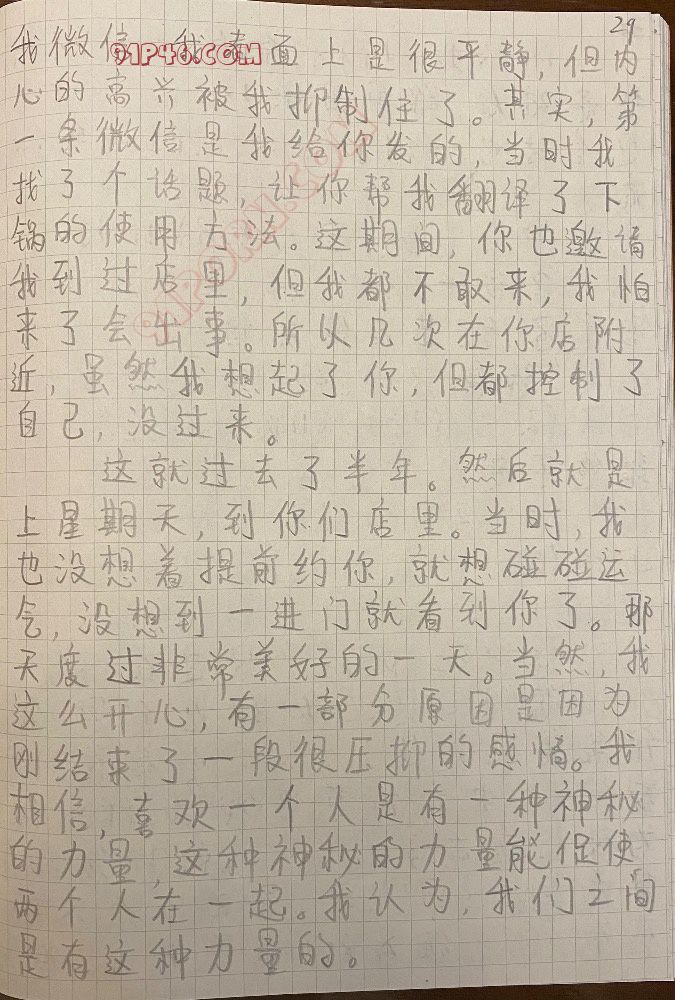 29
我微信 我表面上是很平静，但内
91P46.COM
心的高兴被我抑制住了。其实，第
一条微信是我给你发的，当时我
找了个话题，让你帮我翻译了下
锅的使用方法。这期间，你也邀请
我到过店里，但我都不敢来，我怕
来了会出事。所以几次在你店附
近，虽然我想起了你，但都控制了
自己，没过来。
这就过去了半年。然后就是
上星期天，到你们店里。当时，我
也没想着提前约你，就想碰碰运
气，没想到一进门就看到你了。那
天度过非常美好的一天。当然，我
这么开心，有一部分原因是因为
刚结束了一段很压抑的感情。我
相信，喜欢一个人是有一种神秘
的力量，这种神秘的力量能促使
两个人在一起。我认为，我们之间
是有这种力量的。